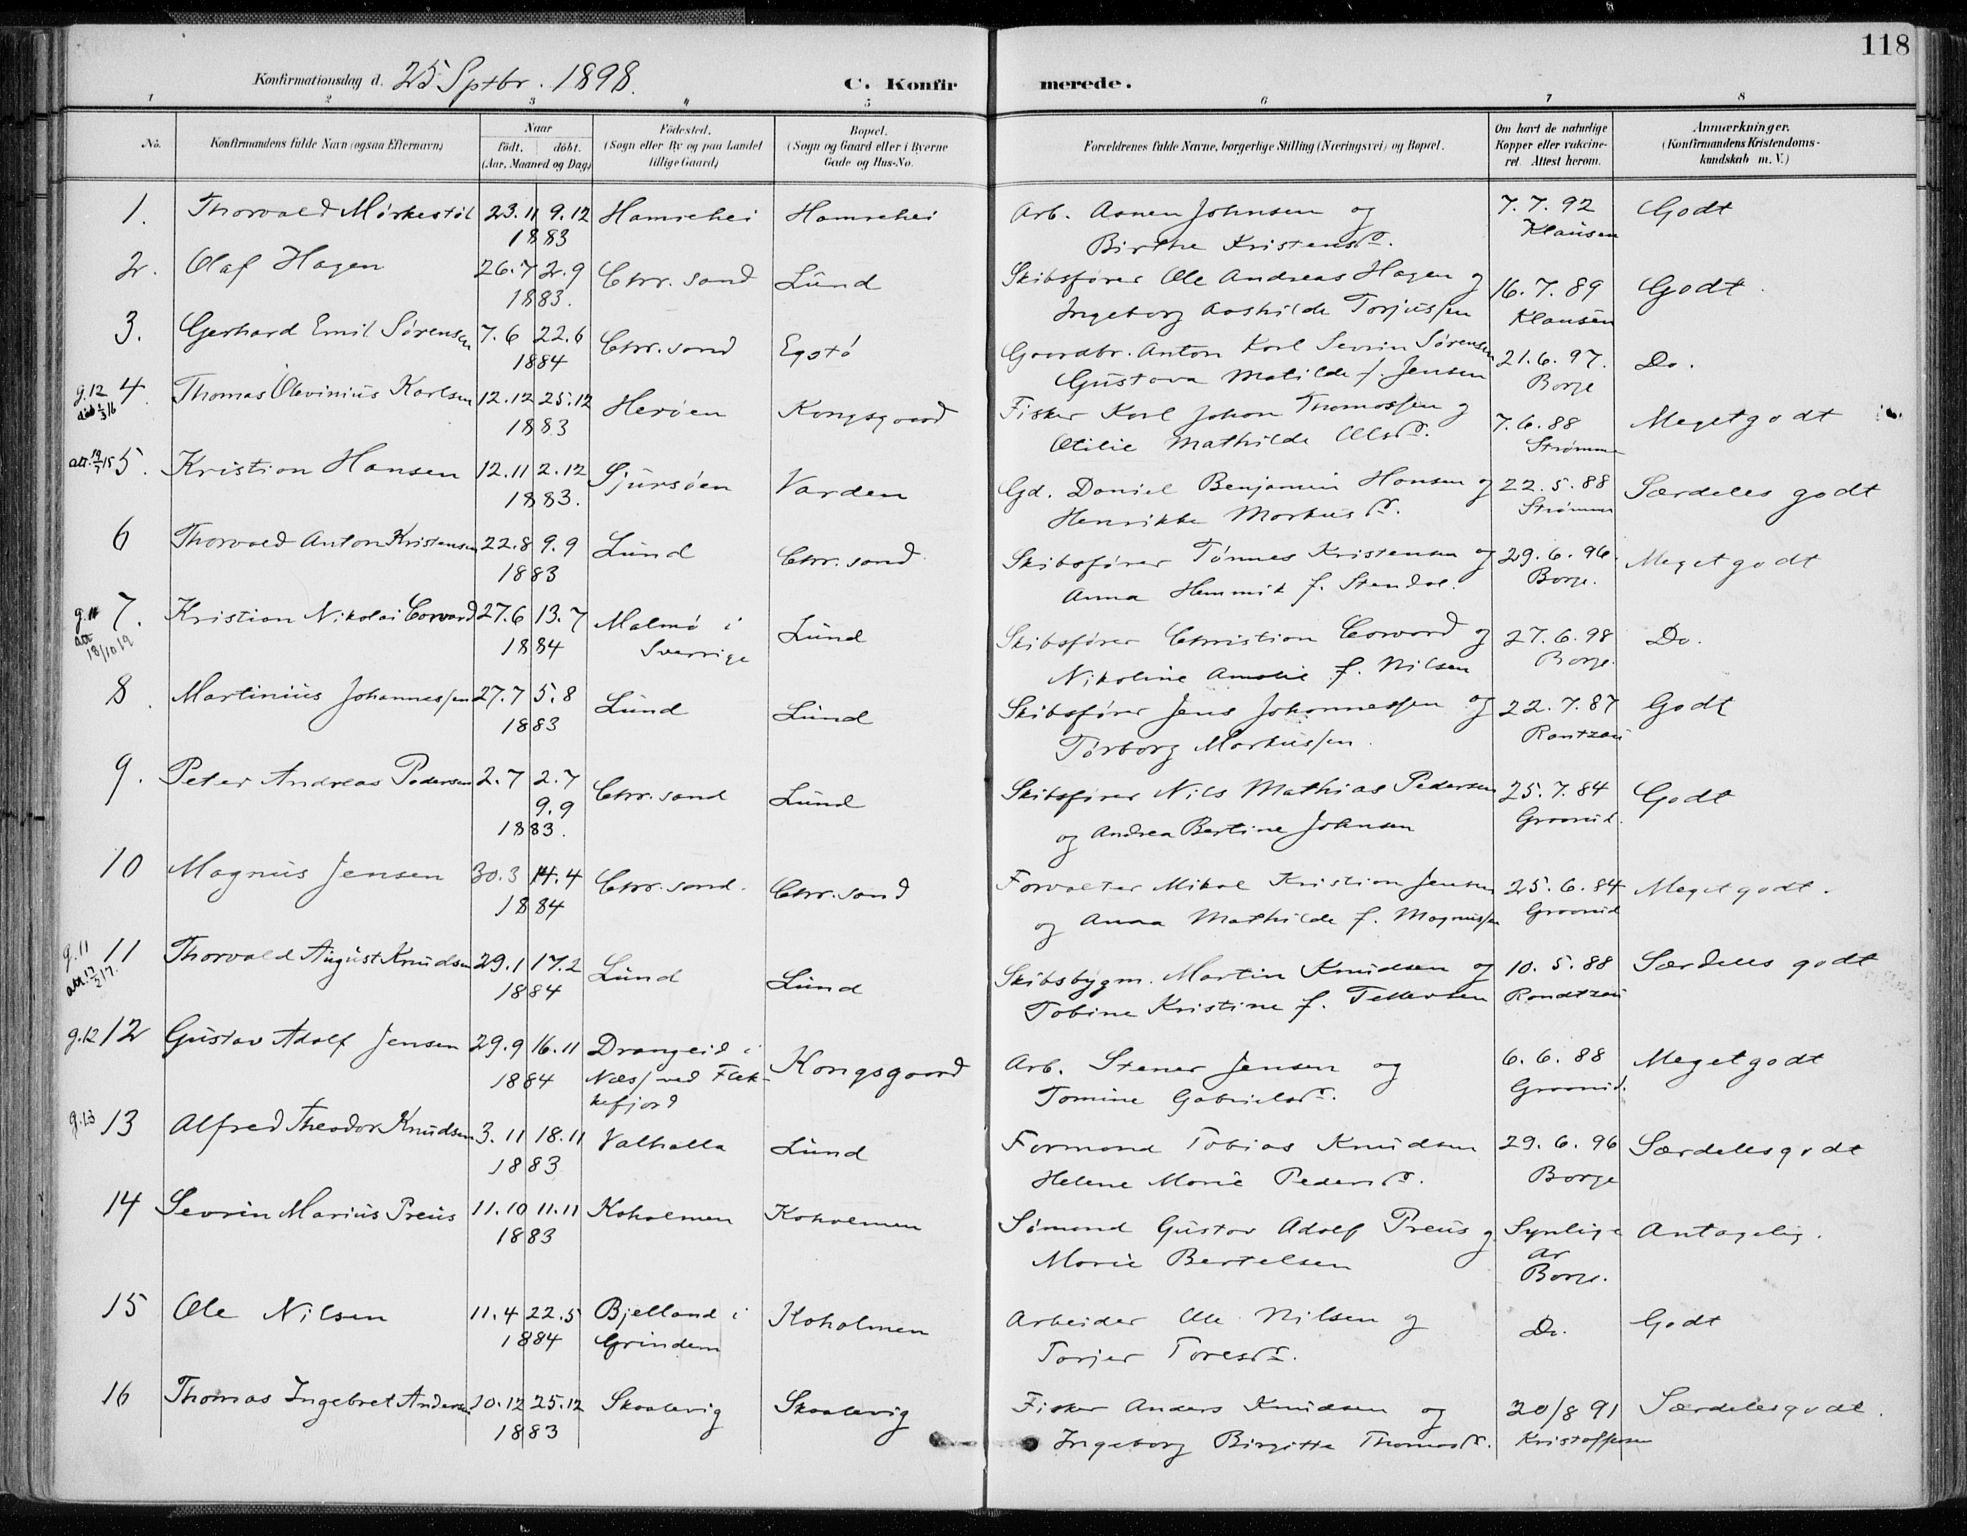 118
Konfirmationsdag d. 25 Sptbr. 1898.
C. Konfirmerede.
1 2 3 4 5 6 7 8
No.
Konfirmandens fulde Navn (ogsaa Efternavn)
Naar
født. døbt.
(Aar, Maaned og Dag)
Fødested.
(Sogn eller By og paa Landet
tillige Gaard)
Bopæl.
(Sogn og Gaard eller i Byerne
Gade og Hus-No.
Forældrenes fulde Navne, borgerlige Stilling (Næringsvei) og Bopæl.
Om havt de naturlige
Kopper eller vakcine-
ret. Attest herom.
Anmærkninger.
(Konfirmandens Kristendoms-
kundskab m. V.)
1. Thorvald Mørkestøl 23.11 9.12 Hamrehei Hamrehei Arb. Aanen Johnsen og 7.7.92 Godt
1883 Birthe Kristensd. Klausen
2. Olaf Hagen 26.7 2.9 Chr. sand Lund Skibsfører Ole Andreas Hagen og 16.7.89 Godt
1883. Ingeborg Aashilde Torjussen Klausen
3. Gerhard Emil Sørensen 7.6 22.6 Chr. sand Egstø Gaardbr. Anton Karl Sevrin Sørensen 21.6.97. Do.
1884 Gustava Matilde f. Jensen Borge
g.12 4 Thomas Olevinius Karlsen 12.12 25.12 Herøen Kongsgaard Fisker Karl Johan Thomassen og 7.6.88 Meget godt
1883 Otilie Mathilde Olsd. Strømme
att. 5. Kristian Hansen 12.11 2.12 Sjursøen Varden Gd. Daniel Benjamin Hansen og 22.5.88 Særdeles godt
1883. Henrikke Markusd. Strømme
6 Thorvald Anton Kristensen 22.8 9.9 Lund Chr. sand Skibsfører Tønnes Kristensen og 29.6.96. Meget godt
1883 Anna f. Borge.
g.11 7. Kristian Nikolai Corvard 27.6 13.7 Malmø i Lund Skibsfører Christian Corvard og 27.6.98 Do.
att 18/10 19 1884 Sverrige Nikoline Amalie f. Nilsen Borge.
8. Martinius Johannessen 27.7 5.8 Lund Lund Skibsfører Jens Johannessen og 22.7.87 Godt
1883 Tørborg Markussen. Rantzau
9. Peter Andreas Pedersen 2.7 2.7 Chr. sand Lund Skibsfører Nils Mathias Pedersen 25.7.84 Godt
9.9
1883. og Andrea Bertine Johnsen
10 Magnus Jensen 30.3 14.4 Chr. sand. Chr. sand Forvalter Mikal Kristian Jensen 25.6.84 Meget godt.
1884 og Anna Mathilde f. Magnussen
g.11 11 Thorvald August Knudsen 29.1 17.2 Lund Lund Skibsbygm. Martin Knudsen og 10.5.88 Særdeles godt
1884 Tobine Kristine f. Tellevsen Randtzau
g.12 12 Gustav Adolf Jensen 29.9 16.11 Drangeid i Kongsgaard Arb. Stener Jensen og 6.6.88 Meget godt
1884 Næs ved Flek- Tomine Gabrielsd.
kefjord
g.13 13 Alfred Theodor Knudsen 3.11 18.11 Valhalla Lund Formand Tobias Knudsen 29.6.96 Særdeles godt
1883 Helene Marie Pedersd. Borge
14 Sevrin Marius Preus 11.10 11.11 Koholmen Koholmen Sømand Gustav Adolf Preus og Synlige Antagelig.
1883 Marie Bertelsen ar
Borge.
15 Ole Nilsen 11.4 22.5 Bjelland i Koholmen Arbeider Ole Nilsen og Do. Godt
1884 Grindem Torjer Toresd.
16 Thomas Ingebret Andersen 10.12 25.12 Skaalevig Skaalevig Fisker Anders Knudsen og 20/8 91 Særdeles godt.
1883 Ingeborg Birgitte Thomasd. Kristoffersen